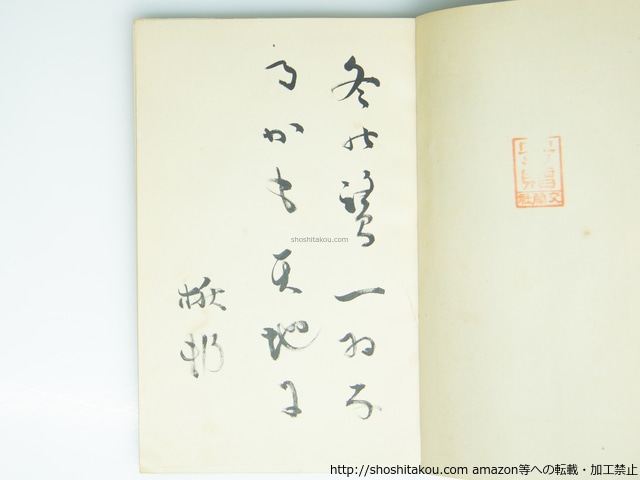 冬の鷺一羽な
るかも天地に
楸邨
shoshitakou.com
http://shoshitakou.com amazon等への転載・加工禁止